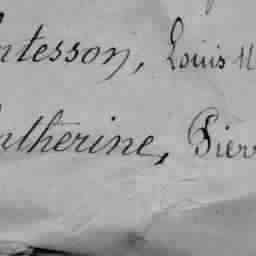 ntesson, Louis
atherine, Pierr